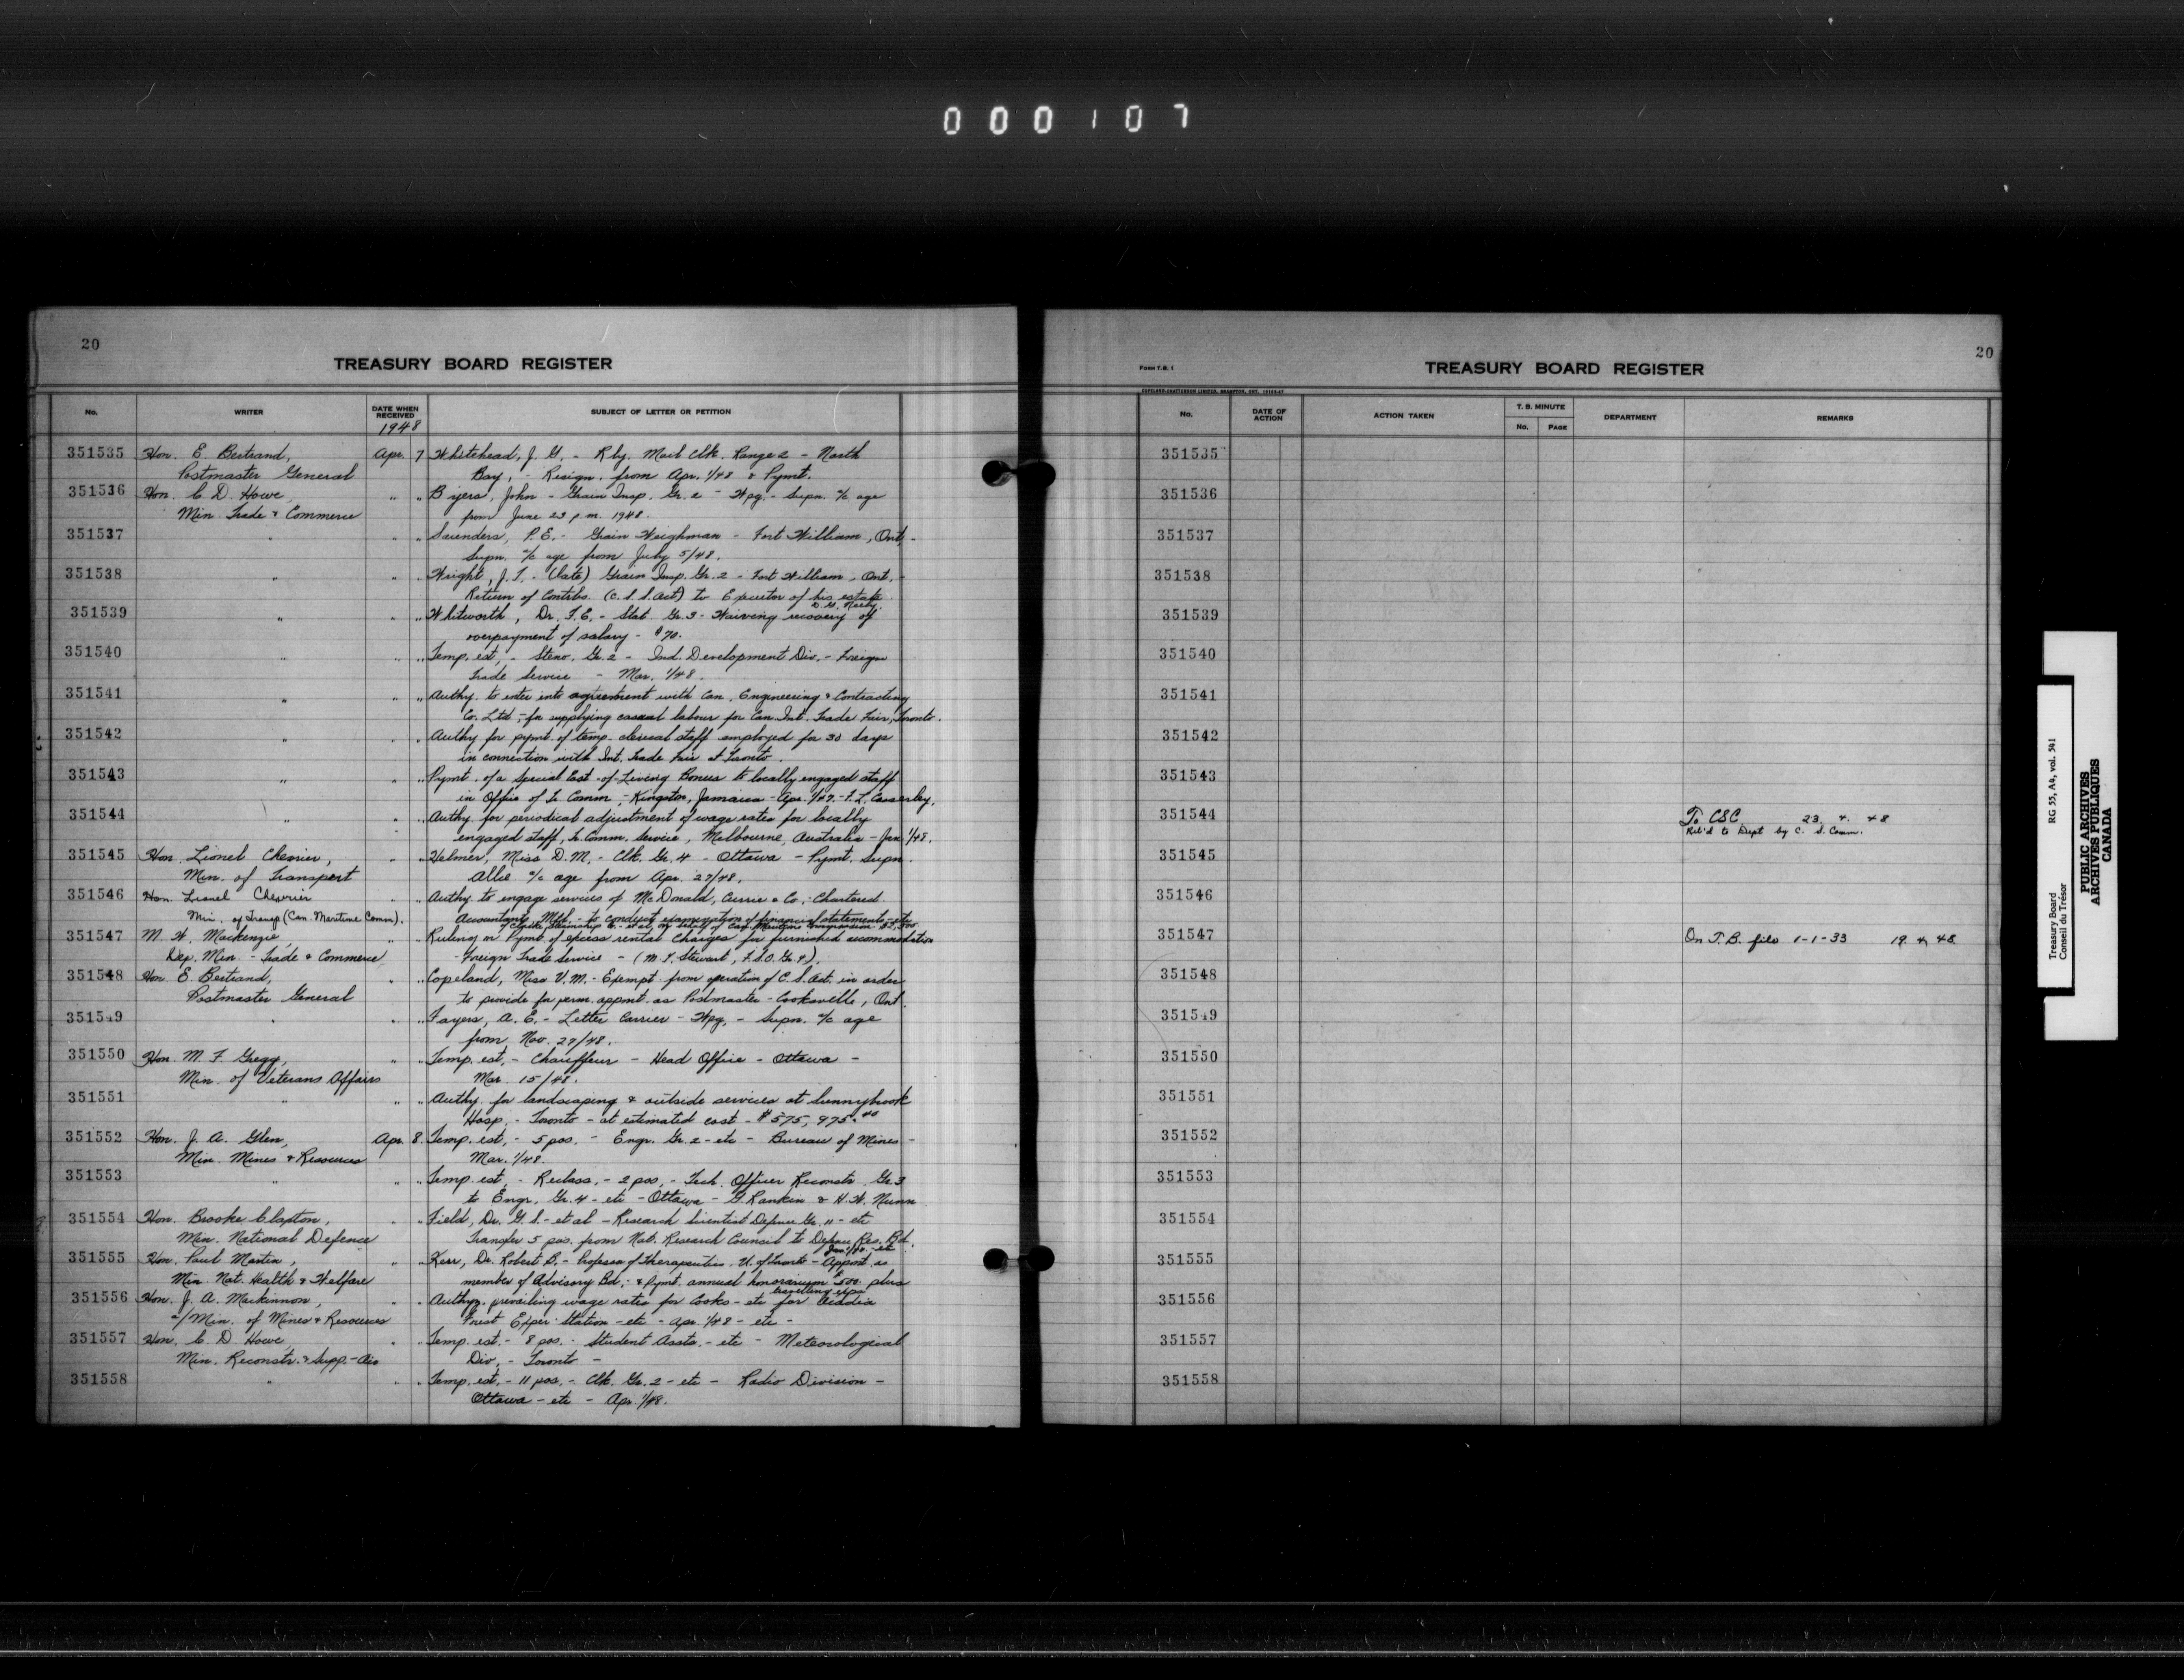 000107
20
TREASURY BOARD REGISTER
No. WRITER DATE WHEN RECEIVED SUBJECT OF LETTER OR PETITION
1948
351535 Hon. E. Bertrand, Apr. 7 Whitehead, J. G. - Rly. Mail Clk. Range 2 - North
Postmaster General Bay, - Resign. from Apr. 1/48 & Pymt.
351536 Hon. C. D. Howe, " " Byers, John - Grain Insp. Gr. 2 - Wpg. - Supn. a/c age
Min. Trade & Commerce from June 23 p.m. 1948.
351537 " " " Saunders, P. E. - Grain Weighman - Fort William, Ont. -
Supn. a/c age from July 5/48.
351538 " " " Wright, J. T. - (late) Grain Insp. Gr. 2 - Fort William, Ont. -
Return of Contribs. (C.S.S. Act) to Executor of his estate
351539 " " " Whitworth, Dr. F. E. - Stat. Gr. 3 - Waiving recovery of
overpayment of salary - $70.
351540 " " " Temp. est, - Steno. Gr. 2 - Ind. Development Div. - Foreign
Trade Service - Mar. 1/48.
351541 " " " Authy. to enter into agreement with Can. Engineering & Contracting
Co. Ltd - for supplying casual labour for Can. Int. Trade Fair, Toronto.
351542 " " " Authy for pymt. of temp. clerical staff employed for 30 days
in connection with Int. Trade Fair at Toronto.
351543 " " " Pymt. of a Special Cost-of-Living Bonus to locally engaged staff
in Office of Tr. Comm., - Kingston, Jamaica - Apr. 1/47. - F. L. Casserley.
351544 " " " Authy. for periodical adjustment of wage rates for locally
engaged staff, Tr. Comm. Service, Melbourne, Australia - Jan. 1/48.
351545 Hon. Lionel Chevrier, " " Helmer, Miss D. M. - Clk. Gr. 4 - Ottawa - Pymt. Supn.
Min. of Transport Allce a/c age from Apr. 27/48.
351546 Hon. Lionel Chevrier " Authy. to engage services of McDonald, Currie & Co. - Chartered
Min. of Transp (Can. Maritime Comm). Accountants, Mtl. - to conduct examination of financial statements - etc
of Clarke Steamship Co. - et al, on behalf of Can. Maritime Commission $2,500.
351547 M. W. Mackenzie, " Ruling on Pymt. of excess rental charges for furnished accommodation
Dep. Min. - Trade & Commerce - Foreign Trade Service - (M. T. Stewart, F.S.O. Gr. 7).
351548 Hon. E. Bertrand, " " Copeland, Miss V. M. - Exempt. from operation of C. S. Act. in order
Postmaster General to provide for perm. appmt. as Postmaster - Cooksville, Ont.
351549 " " " Fayers, A. E. - Letter Carrier - Wpg. - Supn. a/c age
from Nov. 27/48.
351550 Hon. M. F. Gregg, " " Temp. est, - Chauffeur - Head Office - Ottawa -
Min. of Veterans Affairs Mar. 15/48.
351551 " " " Authy. for landscaping & outside services at Sunnybrook
Hosp. - Toronto - at estimated cost - $575,975.40
351552 Hon. J. A. Glen, Apr. 8. Temp. est, - 5 pos. - Engr. Gr. 2 - etc - Bureau of Mines -
Min. Mines & Resources Mar. 1/48.
351553 " " " Temp. est, - Reclass. - 2 pos, - Tech. Officer Reconstr. Gr. 3
to Engr. Gr. 4 - etc - Ottawa - G. Rankin & H. W. Nunn
351554 Hon. Brooke Claxton, " " Field, Dr. G. S. - et al - Research Scientist Defence Gr. 11 - etc
Min. National Defence Transfer 5 pos. from Nat. Research Council to Defence Res. Bd.
Jan. 1/48 - etc
351555 Hon. Paul Martin, " " Kerr, Dr. Robert B. - Professor of Therapeutics, U. of Toronto - Appmt. as
Min. Nat. Health & Welfare member of Advisory Bd., & Pymt. annual honorarium $500. plus
travelling exps
351556 Hon. J. A. Mackinnon, " " Authy. prevailing wage rates for Cooks - etc for Acadia
a/ Min. of Mines & Resources Forest Exper. Station - etc - Apr. 1/48 - etc -
351557 Hon. C. D. Howe, " " Temp. est. - 8 pos. - Student Assts. - etc - Meteorological
Min. Reconstr. & Supp. - Air Div. - Toronto -
351558 " " " Temp. est. - 11 pos. - Clk. Gr. 2 - etc - Radio Division -
Ottawa - etc - Apr. 1/48.
20
FORM T.B. 1
TREASURY BOARD REGISTER
No. DATE OF ACTION ACTION TAKEN T. B. MINUTE No. PAGE DEPARTMENT REMARKS
351535
351536
351537
351538
351539
351540
351541
351542
351543
351544 To CSC 23. 4. 48
Ret'd to Dept by C. S. Comm.
351545
351546
351547 On T.B. file 1-1-33 19 4 48
351548
351549
351550
351551
351552
351553
351554
351555
351556
351557
351558
Treasury Board RG 55, A4, vol. 541
Conseil du Trésor
PUBLIC ARCHIVES
ARCHIVES PUBLIQUES
CANADA